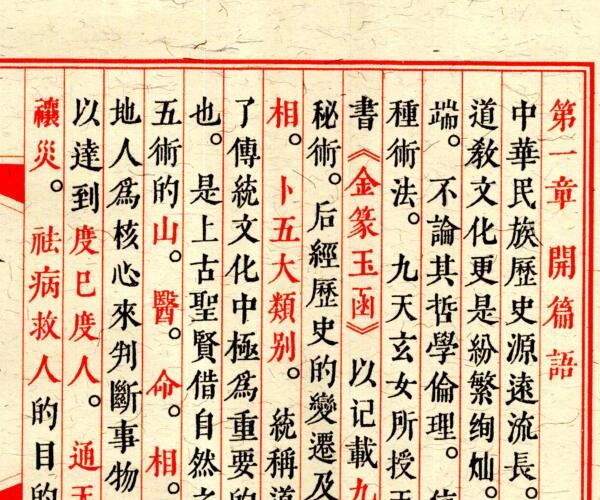 第一章 開篇語
中華民族歷史源遠流長。
道教文化更是紛繁絢灿
端。不論其哲學倫理。
種術法。九天玄女所授
書《金篆玉函》以记載九
秘術。后經歷史的變遷及
相。卜五大類别。統稱道
了傳統文化中極爲重要的
也。是上古聖賢借自然之
五術的山。醫。命。相。
地人爲核心來判斷事物
以達到度巳度人。通天
禳災。祛病救人的目的